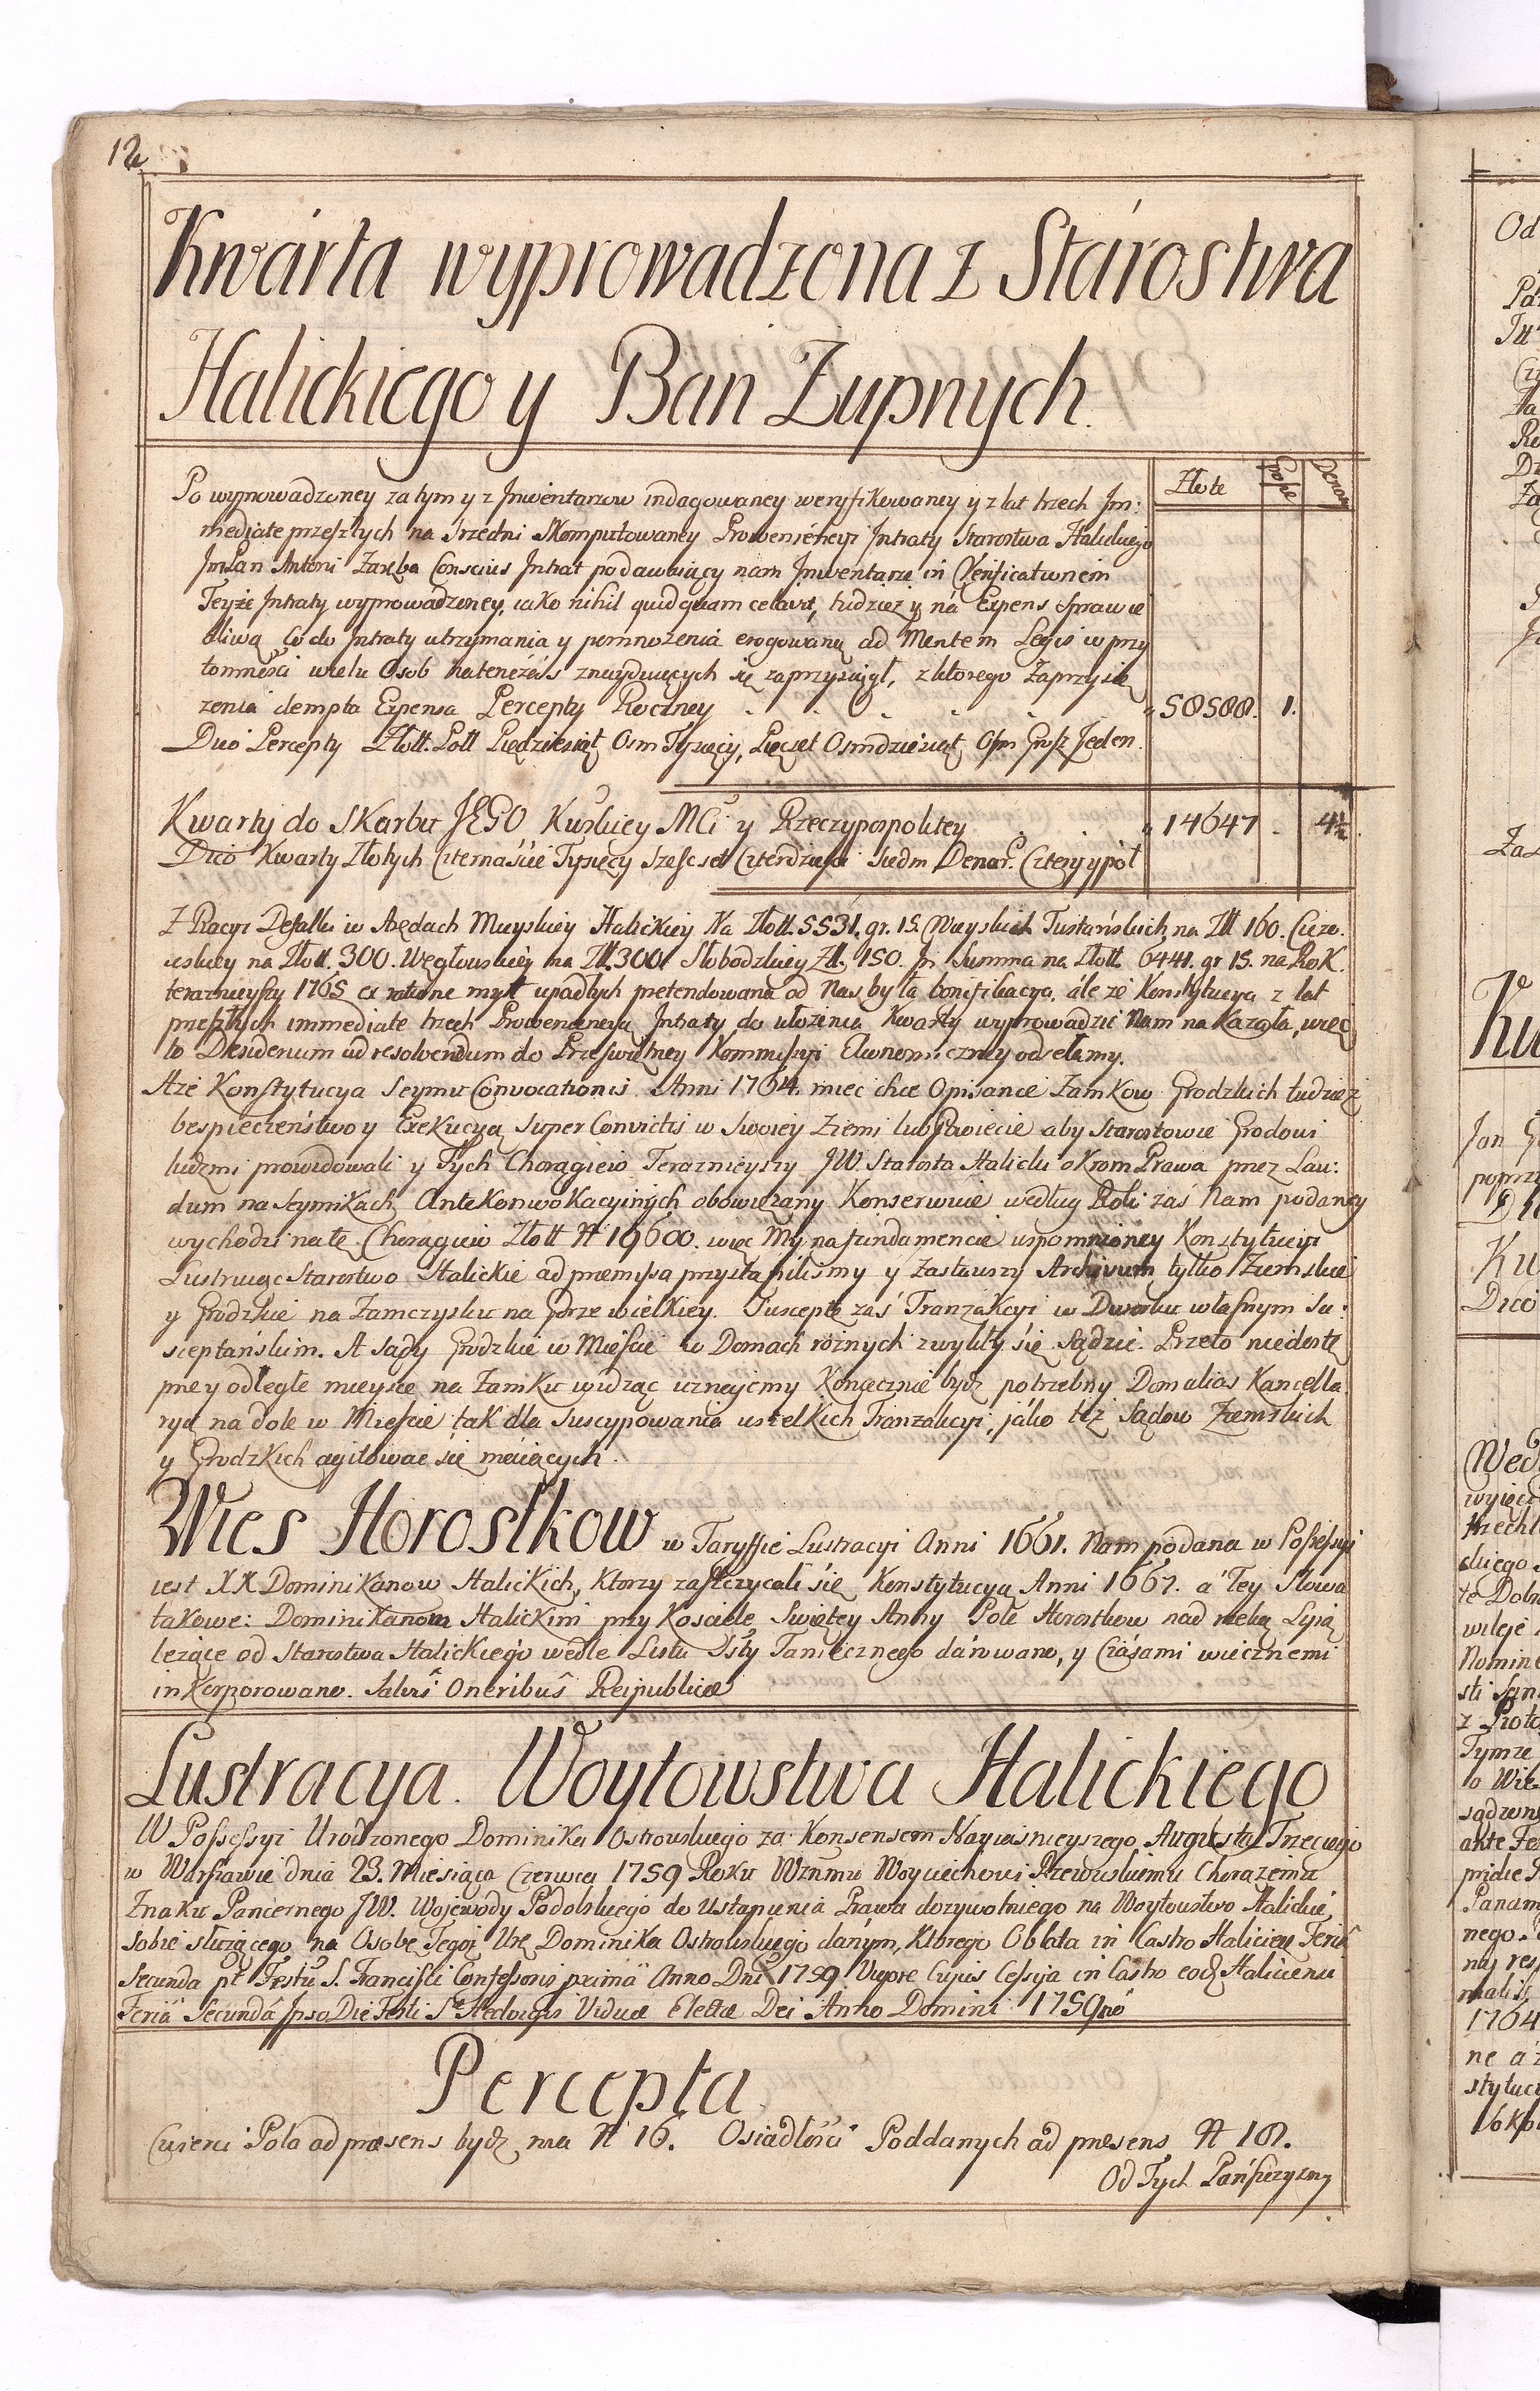 12
Kwarta wyprowadzona z Starostwa
Halickiego y Ban Zupnych.
Złote Grosze Denar
Po wyprowadzoney zatym y z Jnwentarzow indagowaney weryfikowaney y z lat trzech Jm:
mediate przeszłych na Srzedni Skomputowaney Prowenieneyi Jntraty Starostwa Halickiego
JmPan Antoni Zaręba Conscius Jntrat podawaiący nam Jnwentarze in Verificationem
Teyże Jntraty wyprowadzoney, iako nihil quidquam celavit, tudziesz y ná Expens Sprawie
dliwą Co do Jntraty utrzymania y pomnozenia erogowaną ad Mentem Legis w przy
tomnosci wielu Osob natenczás znayduiących się zaprzysiągł, z ktorego Zaprzysię
zenia dempta Expensa Percepty Roczney 58588. 1.
Duo Percepty Złott. Poll Pięćdziesiąt Osm Tysięcy, Pięcset Osmdziesiąt Osm Grosz Jeden.
Kwarty do Skarbu JEGO Krolwiey MCi y Rzeczypospolitey 14647 - 4½
Duo Kwarty Złotych Czternaście Tysięcy Szescset Czterdziesci Siedm Denar. Cztery y poł
Z Racyi Defalki w Arędach Mieyskiey Halickiey Na Złott. 5531. gr. 15. Mieyskich Tustańskich na Złł 160. Ciezo.
wskiey na Złott. 300. Węgłowskiey na Złł. 300. Słobodzkiey Złł. 150. in Summa na Złott. 6441. gr 15. na Rok
teraznieyszy 1765 ex ratione myt upadłych pretendowana od Nas była bonifikacya, ále ze Konstytucya z lat
przeszłych immediate trzech Prowenencyą Jntraty do ułozenia Kwarty wyprowadzić Nam na Kazała, więc
to Desiderium ad resolvendum do Prześwietney Kommissyi Ekonomiczney odsełamy.
Aze Konstytucya Seymu Convocationis Anni 1764. miec chce Opisanie Zamkow Grodzkich tudziesz
bespieczeństwo y Exekucyą Super Convictis w Swoiey Ziemi lub Powiecie aby Starostowie Grodowi
ludzmi prowidowali y Tych Chorągiew Teraznieyszy JW. Starosta Halicki okrom Prawa przez Lau:
dum na Seymikach AnteKonwokacyinych obowiązany Konserwuie według Roli zas Nam podaney
wychodzi na tę Chorągiew Złott N 19600. więc My na fundamencie wspomnioney Konstytucyi
Lustruiąc Starostwo Halickie ad præmissa przystąpiliśmy y Zastawszy Archivum tylko Ziemskie
y Grodzkie na Zamczysku na Gorze wielkiey. Suscepte zaś Tranzakcyi w Dworku własnym Su:
sceptańskim. A Sądy Grodzkie w Mieście w Domach roznych zwykły się Sądzic. Przeto niedostę
pne y odległe mieysce na Zamku widząc uznaiemy Koniecznie bydz potrzebny Dom alias Kancella
ryą na dole w Mieście tak dla Suscypowania wszelkich Tranzakcyi, jáko też Sądow Ziemskich
y Grodzkich agitowac się maiących.
Wies Horostkow w Taryffie Lustracyi Anni 1661. Nam podana w Possessyi
iest XX Dominikanow Halickich, Ktorzy zaszczycali się Konstytucyą Anni 1667. a Tey Słowa
takowe: Dominikanom Halickim przy Kosciele Swiętey Anny Pole Horostkow nad rzeką Lysią
lezące od Starostwa Halickiego wedle Listu Jsty Tamecznego dárowano, y Czásami wiecznemi
inkorporowano. Salvis Oneribus Reipublicæ
Lustracya Woytowstwa Halickiego
W Possessyi Urodzonego Dominika Ostrowskiego za Konsensem Nayiasnieyszego Augusta Trzeciego
w Warszawie dnia 23. Miesiąca Czerwca 1759 Roku Wznmu Woyciechowi Rzewuskiemu Chorązemu
Znaku Pancernego JW. Wojewody Podolskiego do Ustąpienia Prawa dozywotniego na Woytowstwo Halickie
Sobie słuzącego na Osobę Tegoż Urę Dominika Ostrowskiego dánym, Ktorego Oblata in Castro Haliciem Feriâ
Secunda pt Festũ S. Francisci Confessoris proximâ Anno Dni 1759 Cujus Cessya in Castro eodz Haliciensi
Feriâ Secundâ Jpso Die Festi Stæ Hedvigis Viduæ Electæ Dei Anno Domini 1759no
Percepta
Cwierci Pola ad præsens bydz ma N 16. Osiadłości Poddanych ad præsens N 18.
Od Tych Pańszczyzny